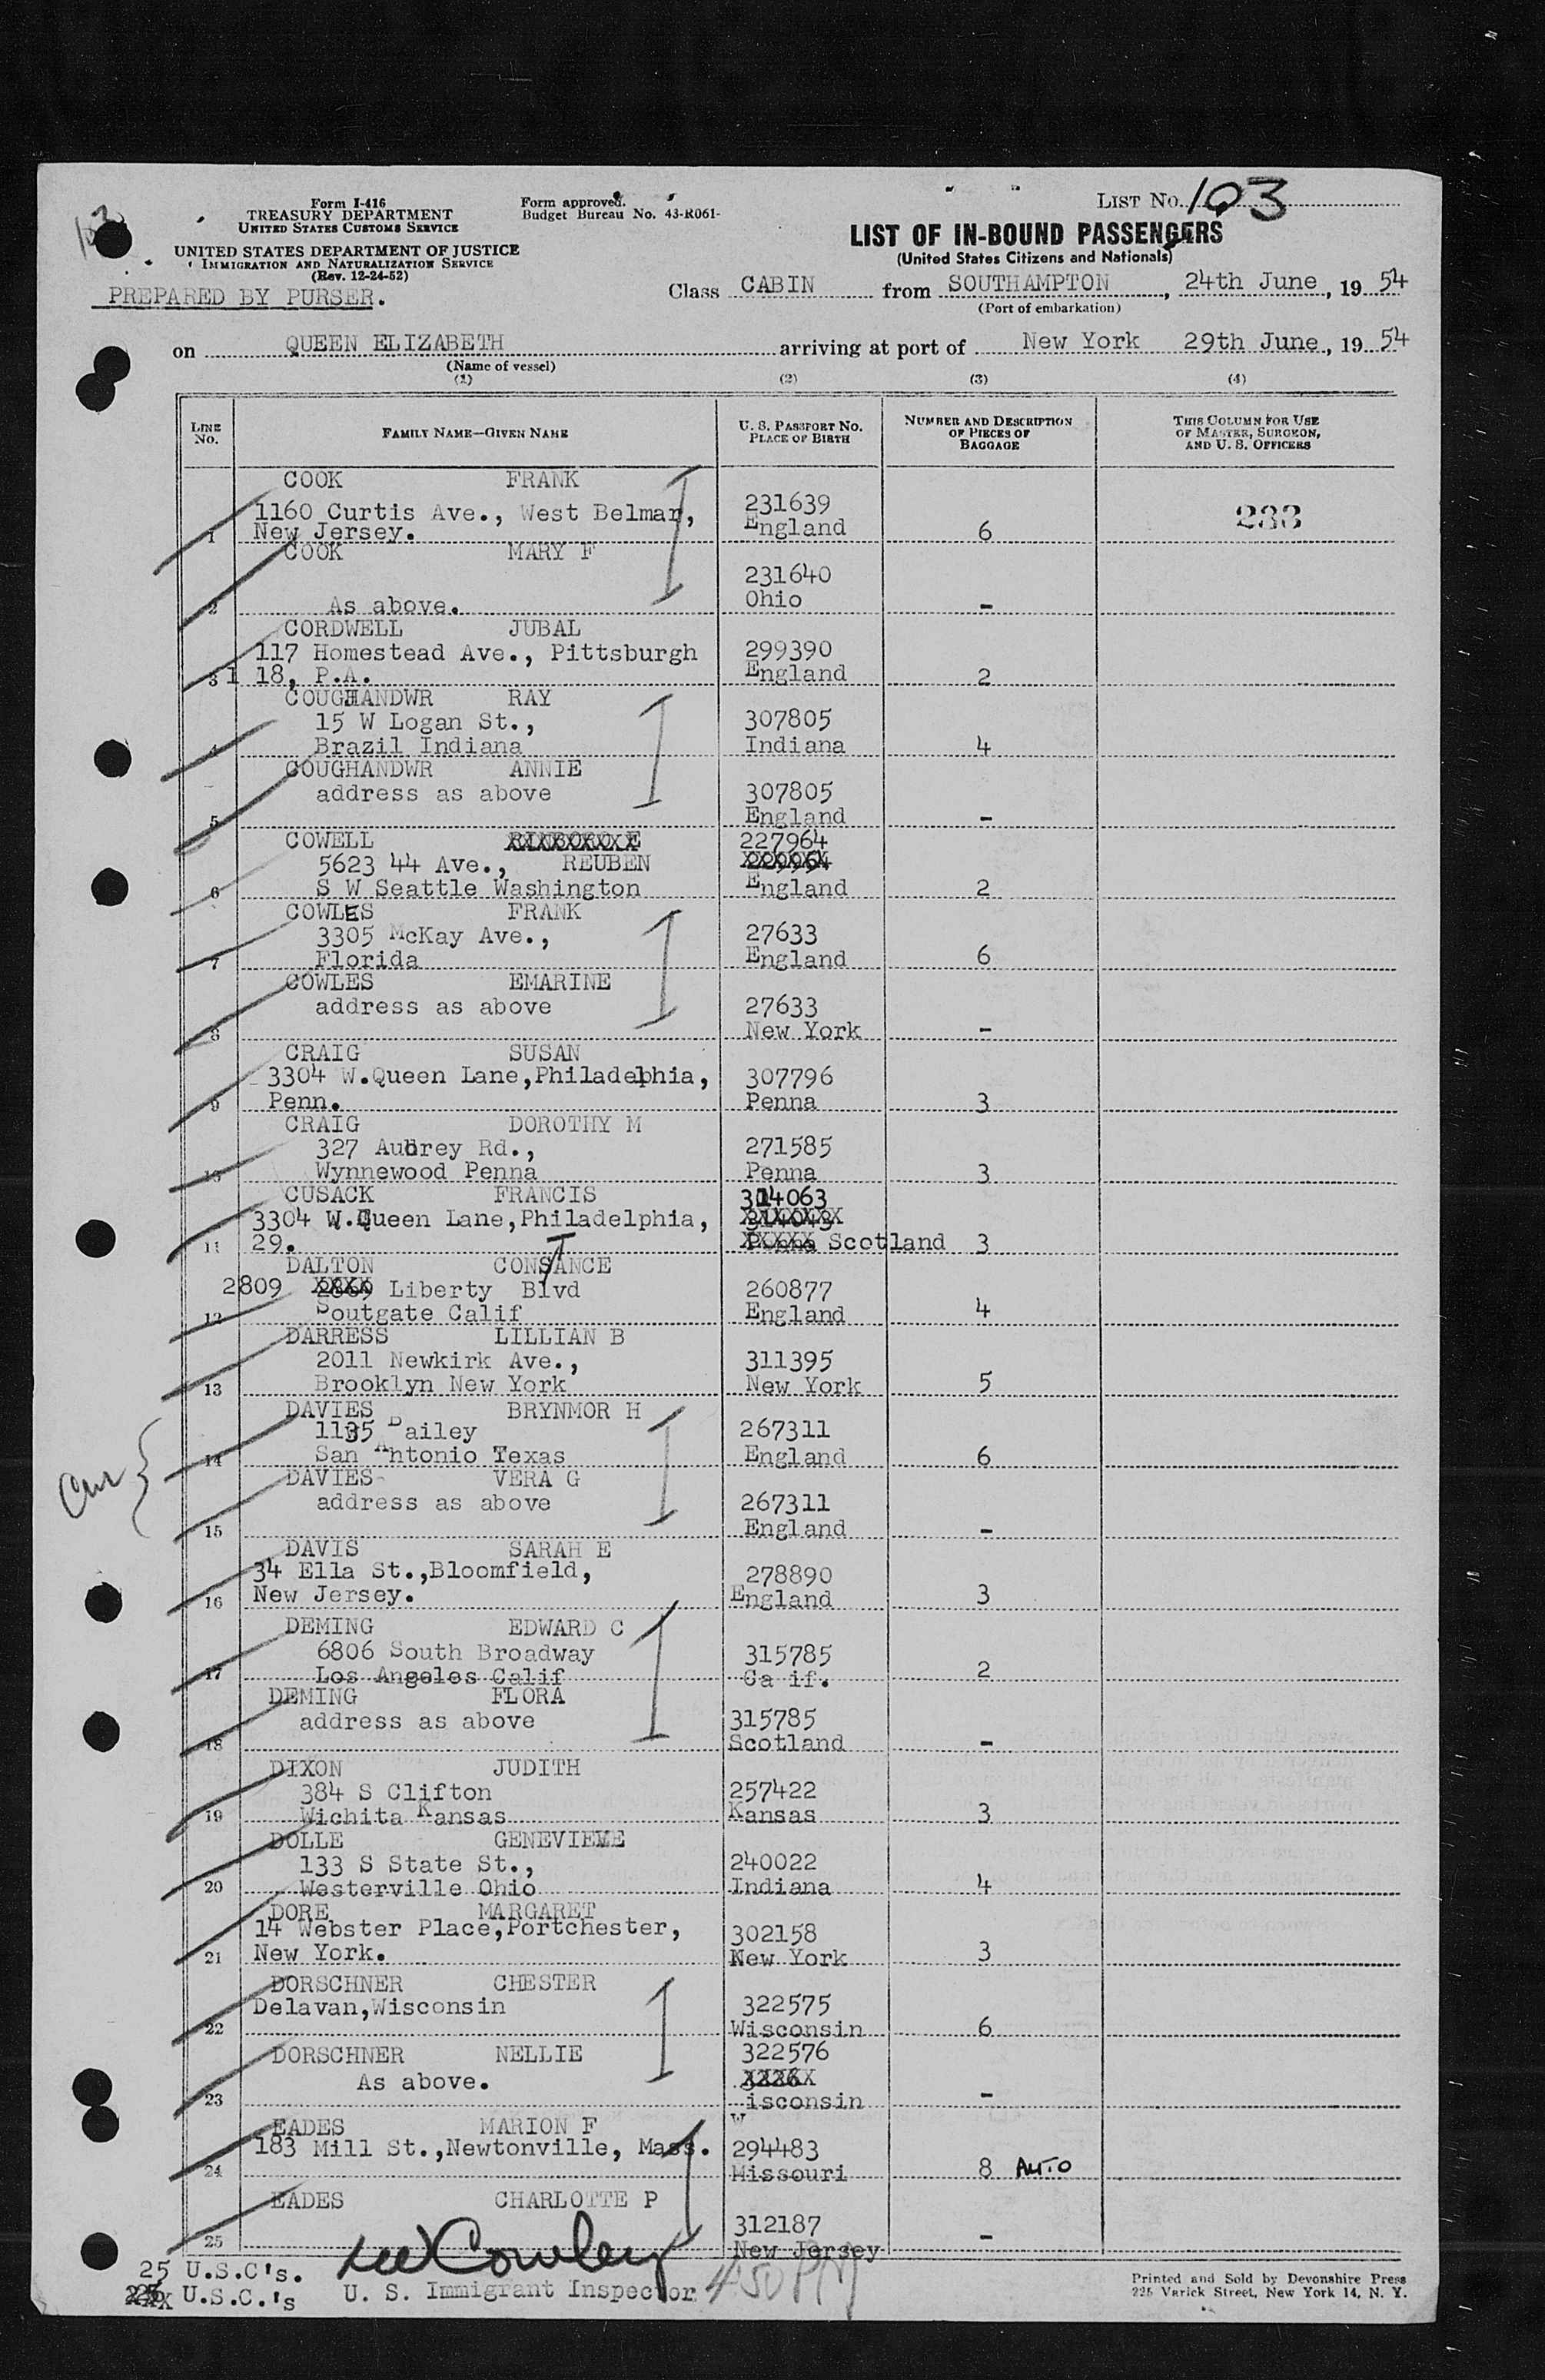 103
Form I-416
TREASURY DEPARTMENT
UNITED STATES CUSTOMS SERVICE
UNITED STATES DEPARTMENT OF JUSTICE
IMMIGRATION AND NATURALIZATION SERVICE
(Rev. 12-24-52)
PREPARED BY PURSER.
Form approved.
Budget Bureau No. 43-R061-
LIST NO. 103
LIST OF IN-BOUND PASSENGERS
(United States Citizens and Nationals)
Class CABIN from SOUTHAMPTON, 24th June, 1954
(Port of embarkation)
on QUEEN ELIZABETH arriving at port of New York 29th June, 1954
(Name of vessel)
(1) (2) (3) (4)
LINE NO. FAMILY NAME—GIVEN NAME U. S. PASSPORT NO. PLACE OF BIRTH NUMBER AND DESCRIPTION OF PIECES OF BAGGAGE THIS COLUMN FOR USE OF MASTER, SURGEON, AND U. S. OFFICERS
COOK FRANK
1160 Curtis Ave., West Belmar, 231639 233
1 New Jersey. England 6
COOK MARY F
231640
2 As above. Ohio -
CORDWELL JUBAL
117 Homestead Ave., Pittsburgh 299390
3 1 18, P.A. England 2
COUGHANDWR RAY
15 W Logan St., 307805
4 Brazil Indiana Indiana 4
COUGHANDWR ANNIE
address as above 307805
5 England -
COWELL 227964
5623 44 Ave., REUBEN
6 S W Seattle Washington England 2
COWLES FRANK
3305 McKay Ave., 27633
7 Florida England 6
COWLES EMARINE
address as above 27633
8 New York -
CRAIG SUSAN
3304 W.Queen Lane,Philadelphia, 307796
9 Penn. Penna 3
CRAIG DOROTHY M
327 Aubrey Rd., 271585
10 Wynnewood Penna Penna 3
CUSACK FRANCIS 314063
3304 W.Queen Lane,Philadelphia,
11 29. Scotland 3
DALTON CONSTANCE
2809 Liberty Blvd 260877
12 Soutgate Calif England 4
DARRESS LILLIAN B
2011 Newkirk Ave., 311395
13 Brooklyn New York New York 5
DAVIES BRYNMOR H
1135 Bailey 267311
14 San Antonio Texas England 6
DAVIES VERA G
address as above 267311
15 England -
DAVIS SARAH E
34 Ella St.,Bloomfield, 278890
16 New Jersey. England 3
DEMING EDWARD C
6806 South Broadway 315785
17 Los Angeles Calif Ca if. 2
DEMING FLORA
address as above 315785
18 Scotland -
DIXON JUDITH
384 S Clifton 257422
19 Wichita Kansas Kansas 3
DOLLE GENEVIEVE
133 S State St., 240022
20 Westerville Ohio Indiana 4
DORE MARGARET
14 Webster Place,Portchester, 302158
21 New York. New York 3
DORSCHNER CHESTER
Delavan,Wisconsin 322575
22 Wisconsin 6
DORSCHNER NELLIE 322576
As above.
23 Wisconsin -
EADES MARION F
183 Mill St.,Newtonville, Mass. 294483
24 Missouri 8 AUTO
EADES CHARLOTTE P
312187
25 New Jersey -
25 U.S.C's.
U.S.C.'s U. S. Immigrant Inspector 450 PM
Printed and Sold by Devonshire Press
225 Varick Street, New York 14, N. Y.